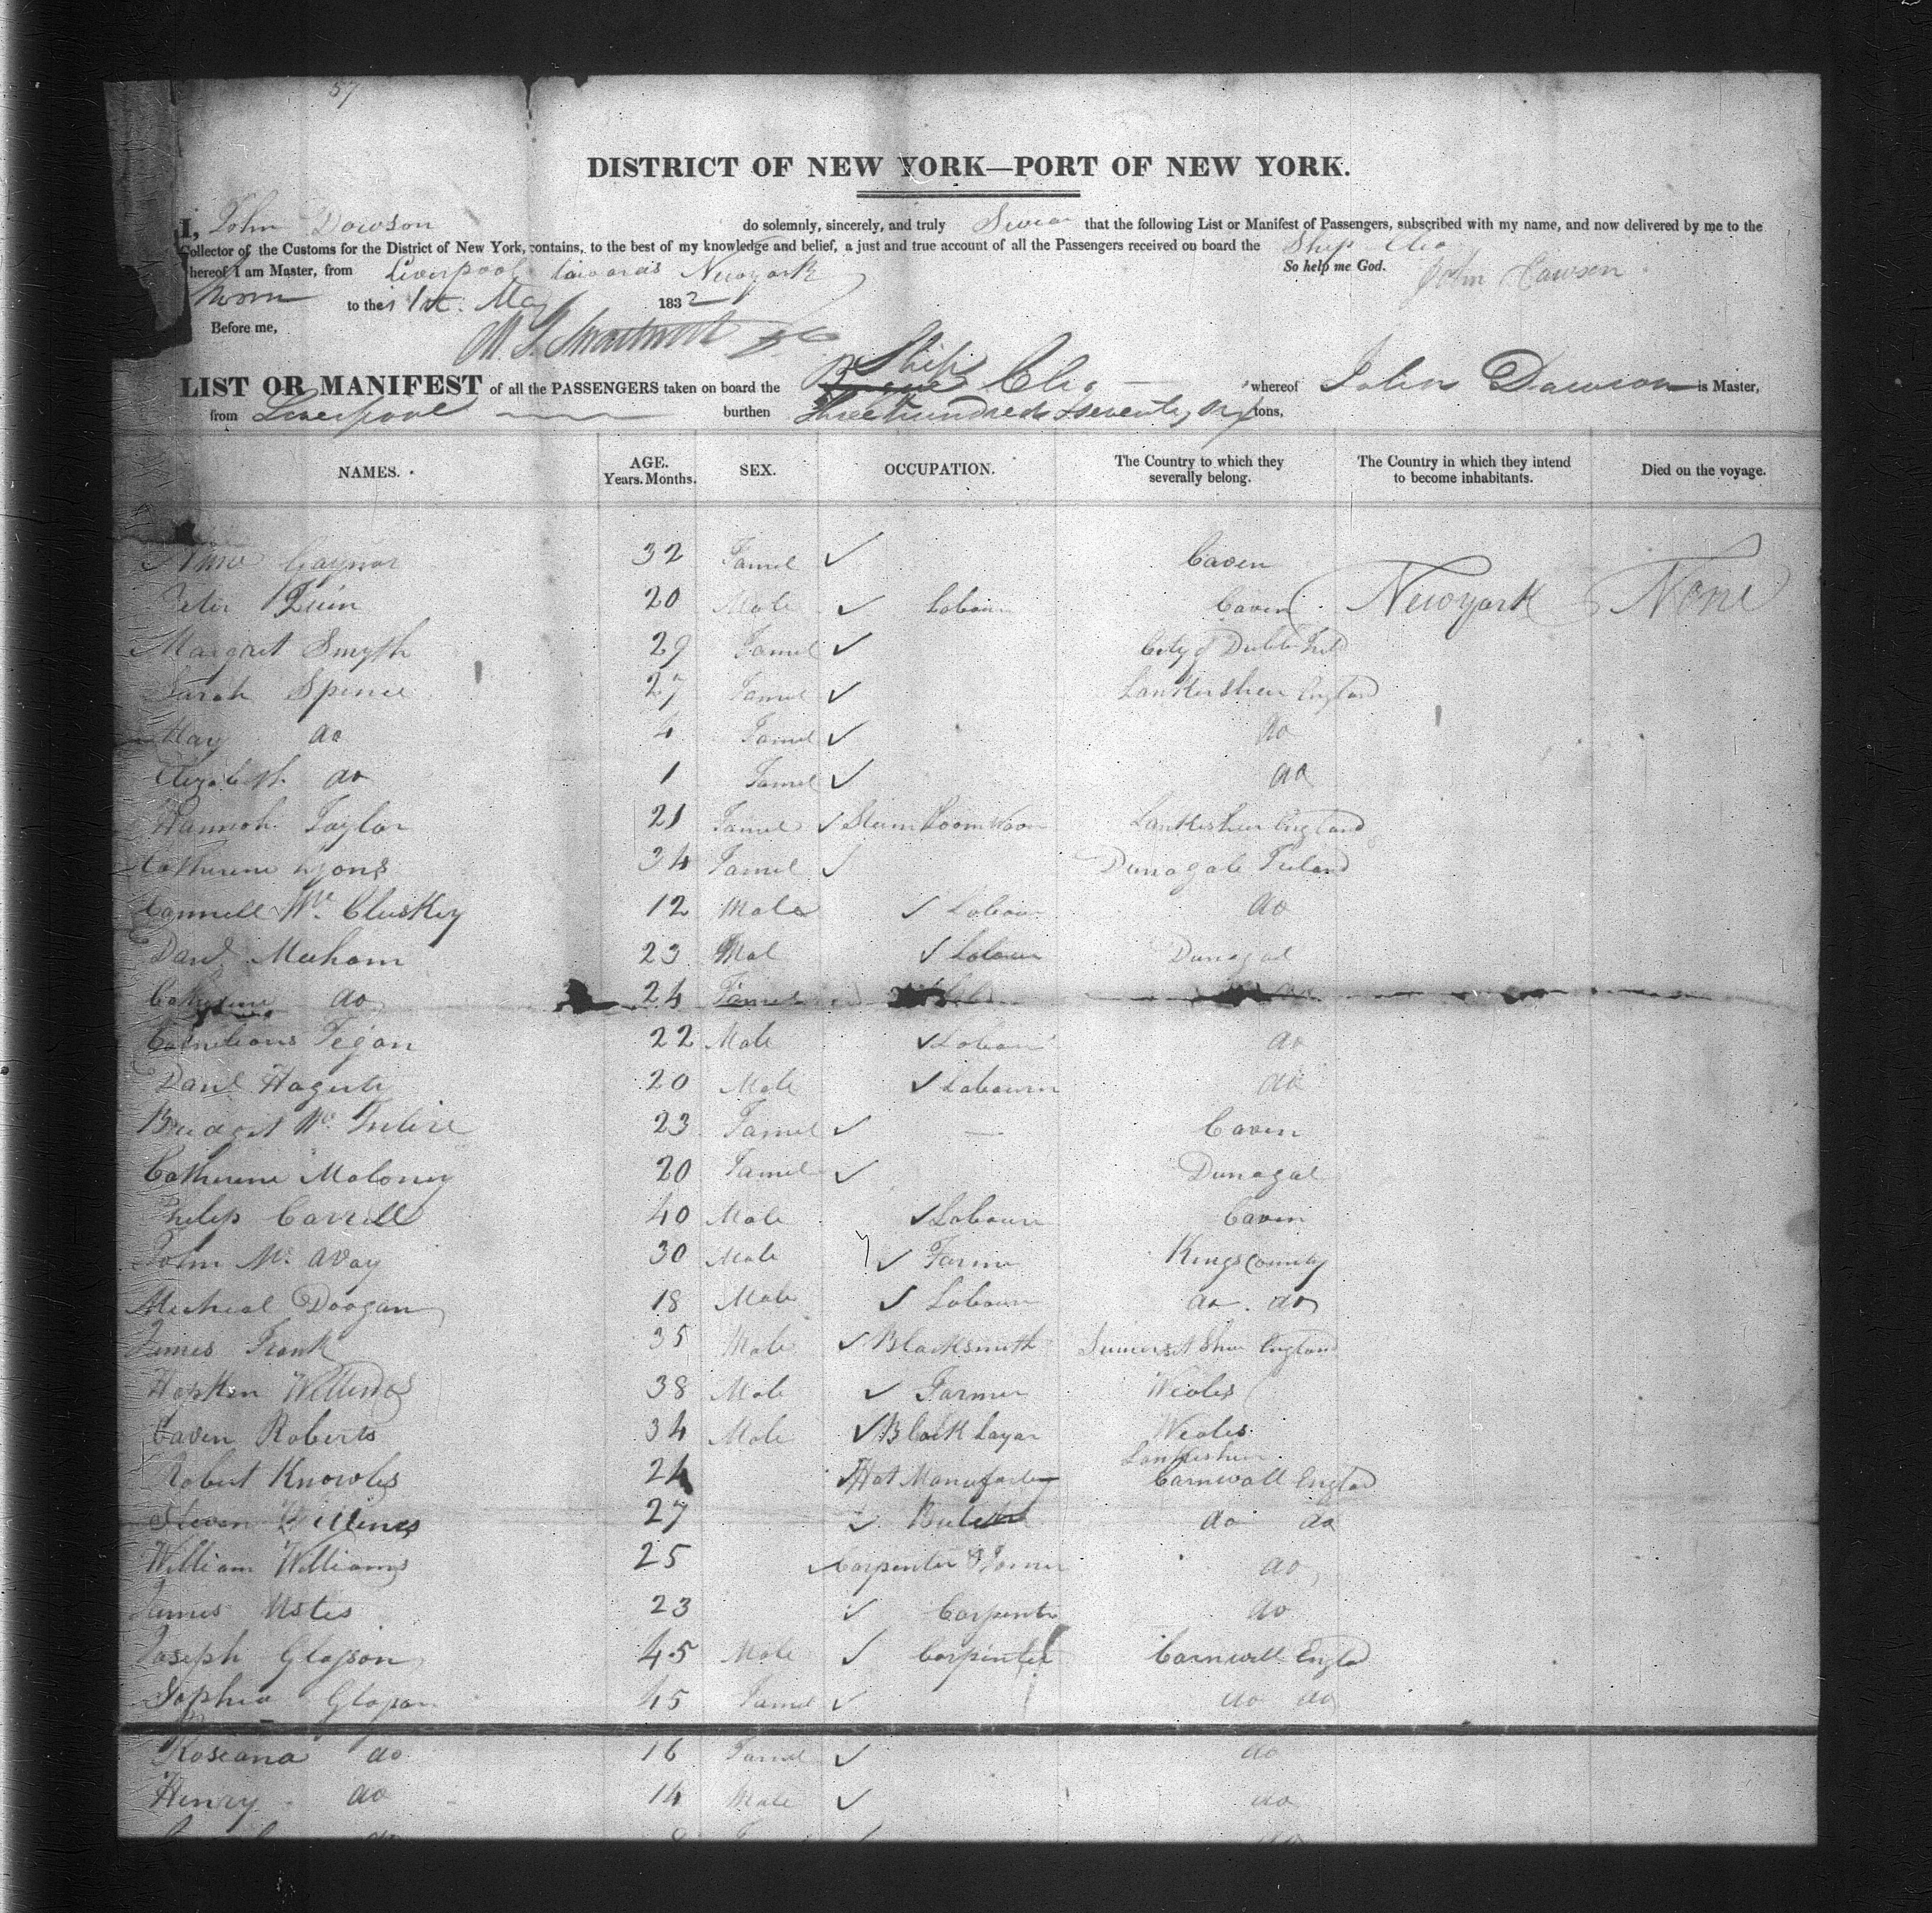 57
DISTRICT OF NEW YORK—PORT OF NEW YORK.
I, John Dawson do solemnly, sincerely, and truly Swear that the following List or Manifest of Passengers, subscribed with my name, and now delivered by me to the
Collector of the Customs for the District of New York, contains, to the best of my knowledge and belief, a just and true account of all the Passengers received on board the Ship Clio
whereof I am Master, from Liverpool towards Newyork So help me God. John Dawson
Sworn to the 1st. May 1832
Before me,
Ship
LIST OR MANIFEST of all the PASSENGERS taken on board the Clio whereof John Dawson is Master,
from Liverpool burthen Three hundred & seventy six tons,
NAMES. AGE. Years. Months. SEX. OCCUPATION. The Country to which they severally belong. The Country in which they intend to become inhabitants. Died on the voyage.
Gaynor 32 Famel ✓ Caven
Peter Quin 20 Male ✓ Labour Caven Newyork None
Margret Smyth 29 Famel ✓ City of Dublin
Sarah Spence 27 Famel ✓ Lankershire England
May do 4 Famel ✓ do
Elizabeth do 1 Famel ✓ do
Hannah Taylor 21 Famel ✓ Steam Loom Lankershire England
Catherine Lyons 34 Famel ✓ Dunagale Ireland
Connell Mc. Cluskey 12 Male ✓ Labour do
Danl. Meeham 23 Mal ✓ Labour Dunagal
Catherine do 24 Famel
Cornelious Fegan 22 Male ✓ Labour do
Danl Hagerty 20 Male ✓ Labourer do
Bridget Mc. 23 Famel ✓ — Caven
Catherine Maloney 20 Famel ✓ Dunagal
Philip Carrell 40 Male ✓ Labour Caven
John Mc. Avay 30 Male ✓ Farmer Kings County
Micheal Doogan 18 Male ✓ Labour do. do
James Frank 35 Male ✓ Blacksmith Sumerset Shire England
Hopkin Willimes 38 Male ✓ Farmer Weales
Caven Roberts 34 Male ✓ Block Layar Weales
Lankershire
Robert Knowles 24 ✓ Hat Manufactey Carnwall England
Steven Willimes 27 ✓ Butcher do do
William Williams 25 ✓ Carpenter & Joiner do
James Ustes 23 ✓ Carpenter do
Joseph Glasson 45 Male ✓ Carpenter Carnwall England
Sophia Glasson 45 Famel ✓ do do
Roseana do 16 Famel ✓ do
Henry do 14 Male ✓ do